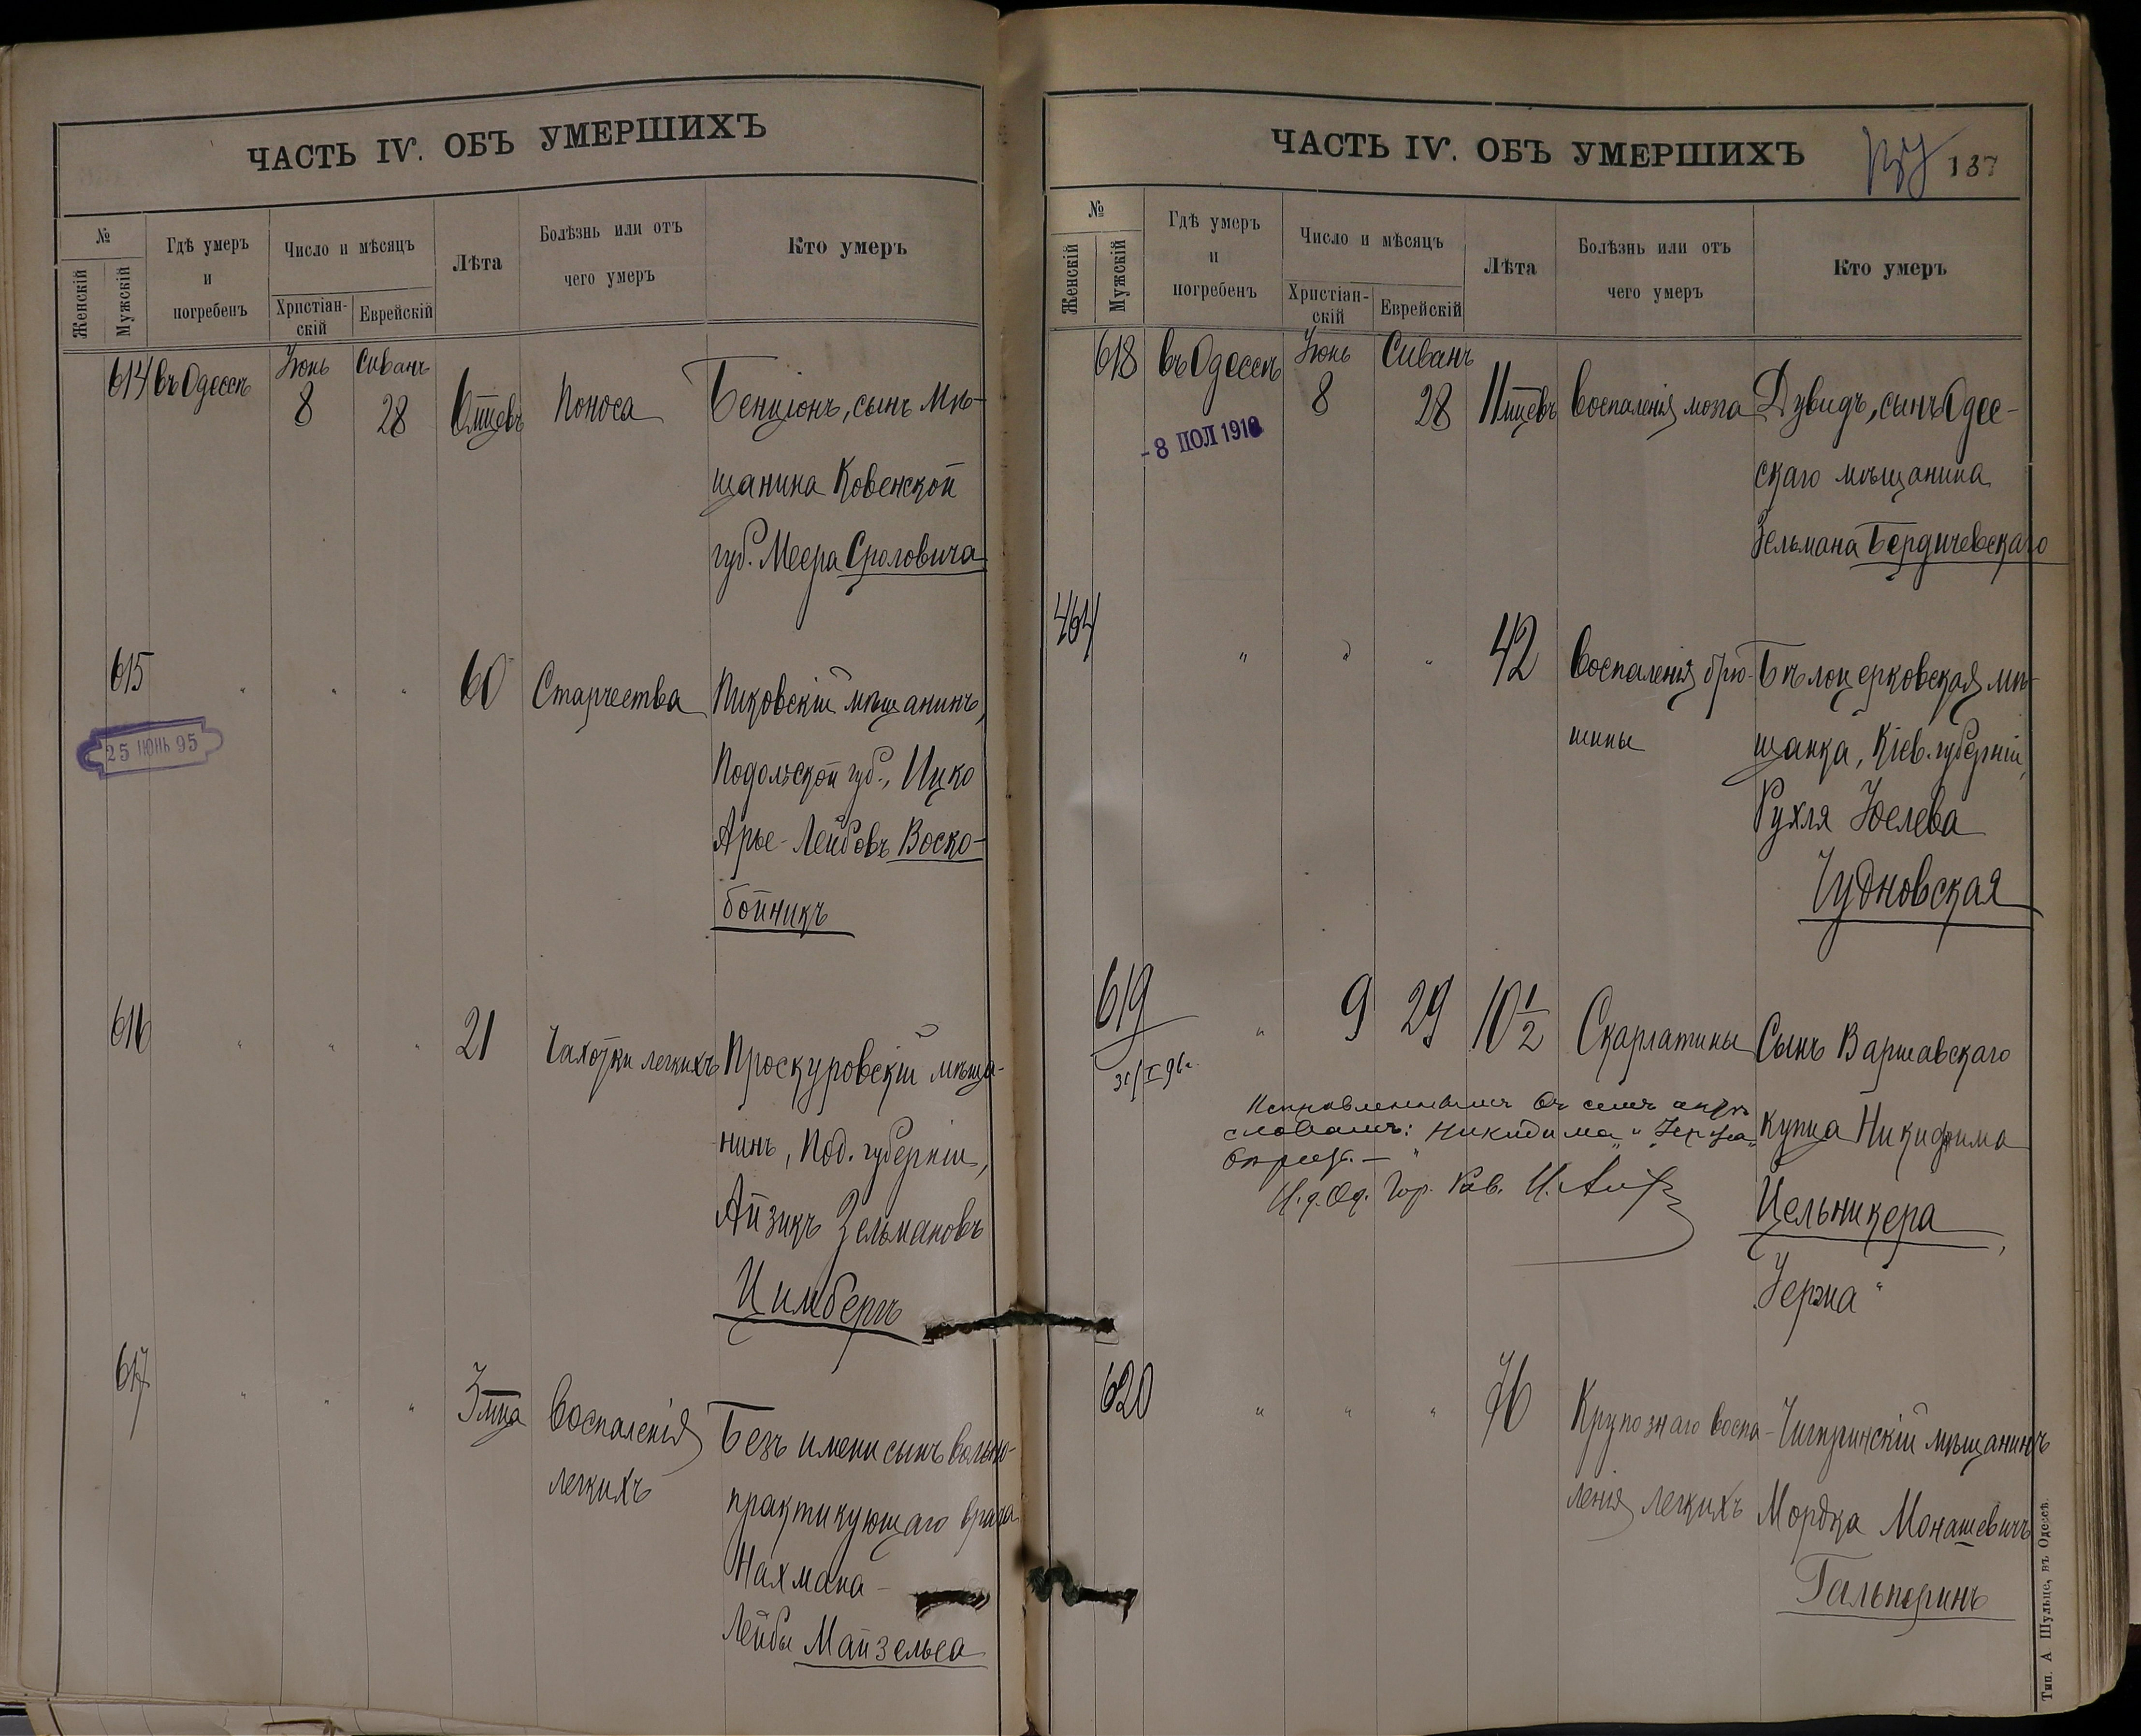 ЧАСТЬ IV. ОБЪ УМЕРШИХЪ
№
Женскій
Мужскій
Гдѣ умеръ
и
погребенъ
Число и мѣсяцъ
Христіан-
скій
Еврейскій
Лѣта
Болѣзнь или отъ
чего умеръ
Кто умеръ
614 въ Одессѣ Іюнь 8 Сиванъ 28 6 мцевъ Поноса Бенціонъ, сынъ Мѣ-
щанина Ковенской
губ. Меера Сроловича
615 " " " 60 Старчества Пиковскій мѣщанинъ,
25 ІЮНЬ 95
Подольской губ., Ицко
Арье-Лейбовъ Воско-
бойникъ
616 " " " 21 Чахотки легкихъ Проскуровскій мѣща-
нинъ, Под. губерніи,
Айзикъ Зельмановъ
Цимбергъ
617 " " " 3 мца Воспаленія Безъ имени сынъ вольно-
легкихъ
практикующаго врача
Нахмана-
Лейбы Майзельса
ЧАСТЬ IV. ОБЪ УМЕРШИХЪ
137
№
Женскій
Мужскій
Гдѣ умеръ
и
погребенъ
Число и мѣсяцъ
Христіан-
скій
Еврейскій
Лѣта
Болѣзнь или отъ
чего умеръ
Кто умеръ
618 въ Одессѣ Іюнь 8 Сиванъ 28 11 мцевъ Воспаленія мозга Дувидъ, сынъ Одес-
- 8 ІЮЛ 1910
скаго мѣщанина
Зельмана Бердичевскаго
464 " " " 42 Воспаленія брю- Бѣлоцерковская мѣ-
шины щанка, Кіев. губерніи,
Рухля Іоелева
Чудновская
619 " 9 29 10 1/2 Скарлатины Сынъ Варшавскаго
31/I 96 г.
Исправленнымъ въ семъ актѣ
словамъ: "Никидима" и "Герша"
вѣрить. —
И. д. Од. Гор. Рав.
купца Никидима
Цельникера,
Герша "
620 " " " 76 Крупознаго воспа- Чигиринскій мѣщанинъ
ленія легкихъ Мордка Монашевичъ
Гальперинъ
Тип. А Шульце, въ Одессѣ.